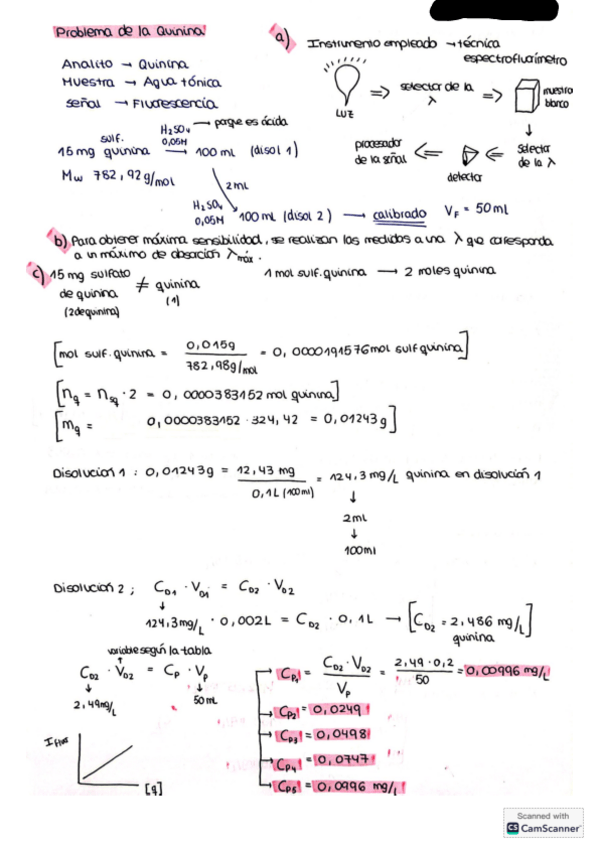 Problema de la Quinina
Analito → Quinina
Muestra → Agua tónica
Señal → Fluorescencia
a) Instrumento empleado → técnica
espectrofluorímetro
LUZ
selector de la
λ
muestra
blanco
selector
de la λ
detector
procesador
de la señal
sulf.
H₂SO₄ → porque es ácida
0,05M
15 mg quinina → 100 ml (disol 1)
Mw 782,92 g/mol
2ml
H₂SO₄
0,05M
100 ml (disol 2) → calibrado VF = 50 ml
b) Para obtener máxima sensibilidad, se realizan las medidas a una λ que corresponda
a un máximo de absorción λmáx.
c) 15 mg sulfato
de quinina ≠ quinina
(2 de quinina) (1)
1 mol sulf. quinina → 2 moles quinina
[mol sulf. quinina = 0,015g / 782,98g/mol = 0,0000191576 mol sulf quinina]
[nq = nsq · 2 = 0,0000383152 mol quinina]
[mq = 0,0000383152 · 324,42 = 0,01243 g]
Disolución 1 : 0,01243g = 12,43 mg / 0,1L (100ml) = 124,3 mg/L quinina en disolución 1
2mL
100ml
Disolución 2 ; CD1 · VD1 = CD2 · VD2
124,3 mg/L · 0,002L = CD2 · 0,1L → [CD2 = 2,486 mg/L]
quinina
variable según la tabla
CD2 · VD2 = Cp · Vp
2,49mg/L
50 mL
Cp1 = CD2 · VD2 / Vp = 2,49 · 0,2 / 50 = 0,00996 mg/L
Cp2 = 0,0249
Cp3 = 0,0498
Cp4 = 0,0747
Cp5 = 0,0996 mg/L
I fluor
[q]
Scanned with
CS CamScanner